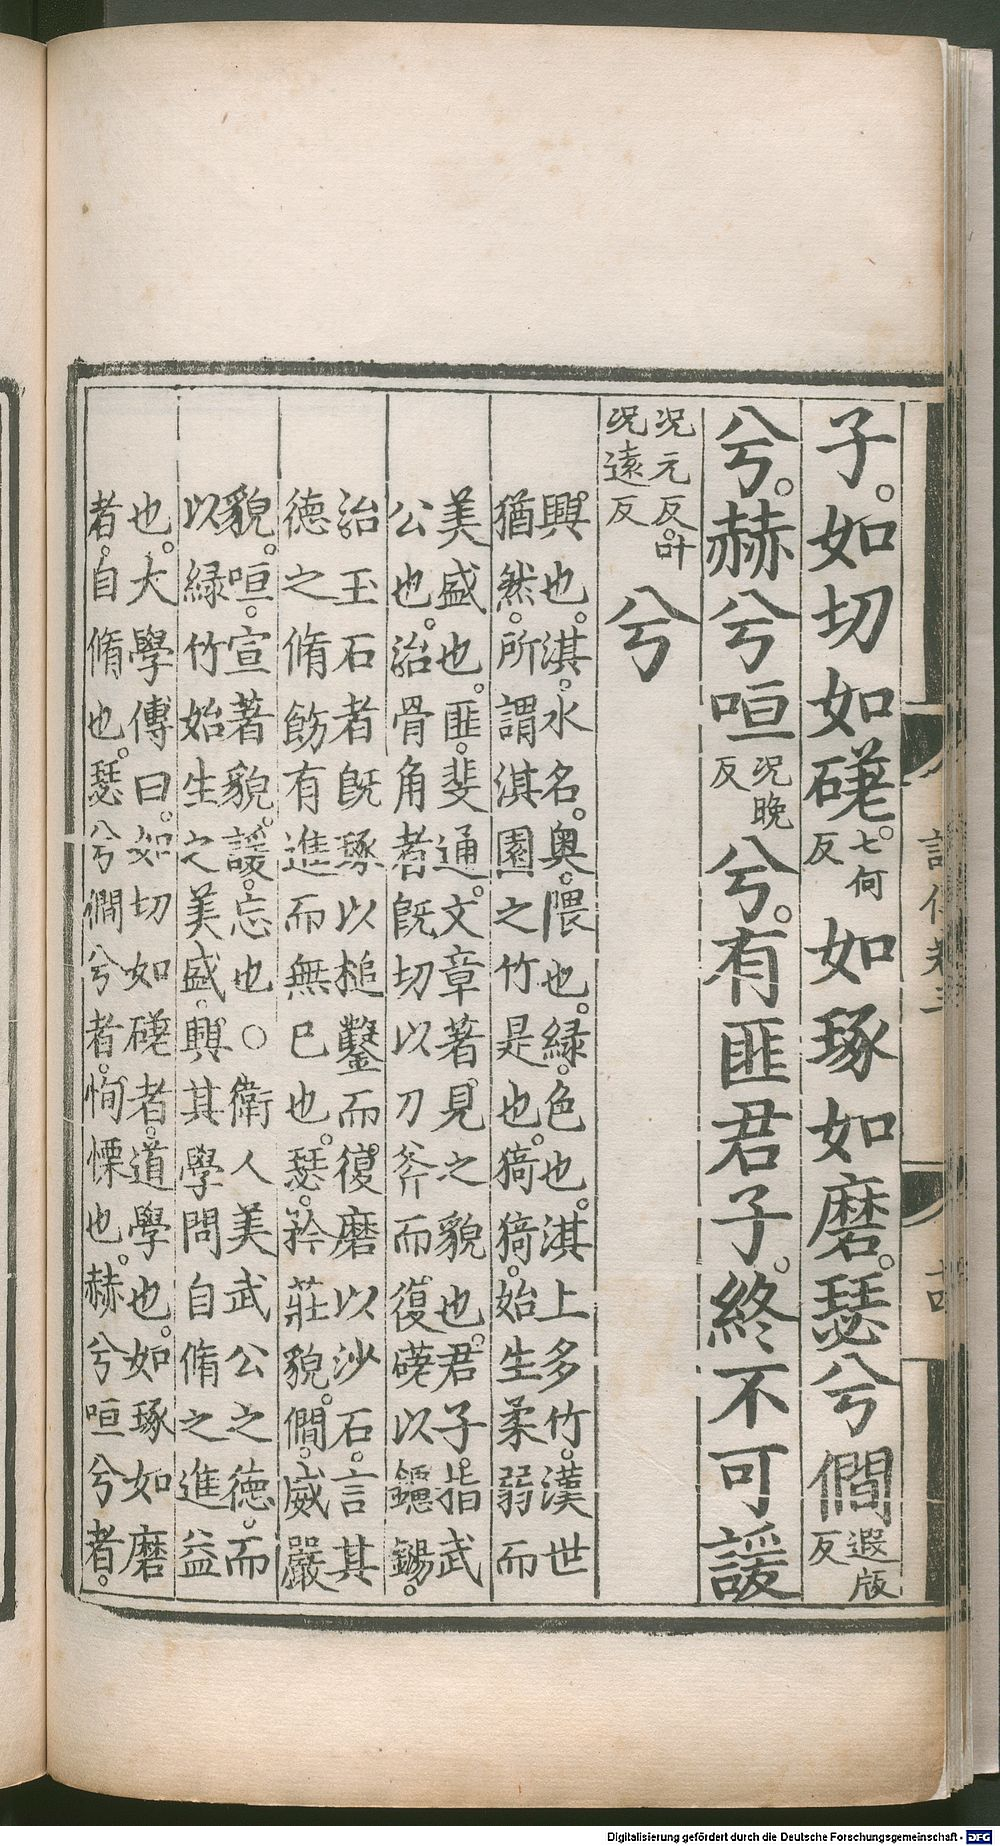 子。如切如磋。七何反如琢如磨。瑟兮僩遐版反
兮。赫兮咺況晚反兮。有匪君子。終不可諼
況元反。叶況遠反兮
興也。淇。水名。奧。隈也。綠。色也。淇上多竹。漢世
猶然。所謂淇園之竹是也。猗猗。始生柔弱而
美盛也。匪。斐通。文章著見之貌也。君子。指武
公也。治骨角者既切以刀斧而復磋以鑢鐋。
治玉石者既琢以槌鑿而復磨以沙石。言其
德之脩飭有進而無已也。瑟。矜莊貌。僩。威嚴
貌。咺。宣著貌。諼。忘也○衛人美武公之德。而
以綠竹始生之美盛。興其學問自脩之進益
也。大學傳曰。如切如磋者。道學也。如琢如磨
者。自脩也。瑟兮僩兮者。恂慄也。赫兮咺兮者。
詩傳卷三
Digitalisierung gefördert durch die Deutsche Forschungsgemeinschaft - DFG